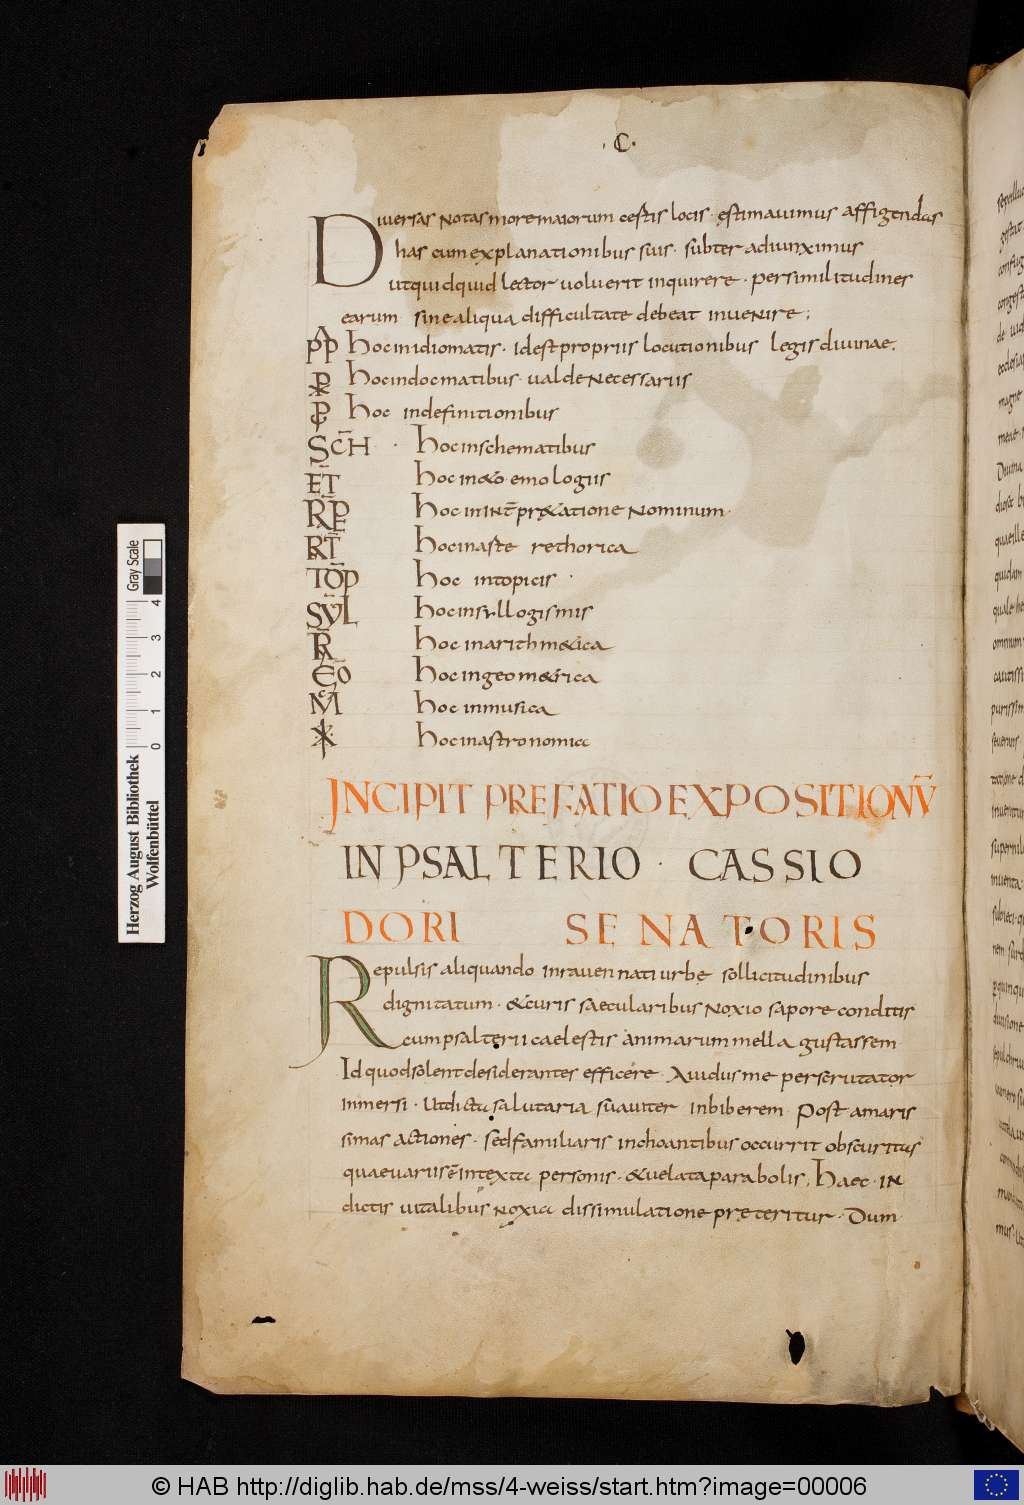 .C.
Diuersas notas more maiorum certis locis. estimauimus affigendas
has cum explanationibus suis. subter adiunximus
ut quidquid lector uoluerit inquirere. per similitudines
earum sine aliqua difficultate debeat inuenire;
PP hoc in idiomatis. id est propriis locutionibus legis diuinae.
hoc in docmatibus. ualde necessariis
hoc in definitionibus
SCH . hoc in schematibus
ET hoc in &ẏmologiis
RP hoc in int̄pr&atione nominum.
RT hoc in arte rethorica
TOP hoc in topicis
SYL hoc in syllogismis
R hoc in arithm&ica
EO hoc in geom&rica
M hoc in musica
hoc in astronomica
INCIPIT PREFATIO EXPOSITIONV̄
IN PSALTERIO · CASSIO
DORI SENATORIS
Repulsis aliquando in rauennati urbe sollicitudinibus
dignitatum. & curis saecularibus noxio sapore conditis
cum psalterii caelestis animarum mella gustassem
Id quod solent desiderantes efficere. Auidus me perscrutator
inmersi. Ut dicta salutaria suauiter inbiberem. Post amaris
simas actiones. sed familiaris inchoantibus occurrit obscuritas
quae uariis ē intexta personis. & uelata parabolis. haec in
dictis uitalibus noxia dissimulatione pręteritur. Dum
Herzog August Bibliothek
Wolfenbüttel
0 1 2 3 4
Gray Scale
© HAB http://diglib.hab.de/mss/4-weiss/start.htm?image=00006